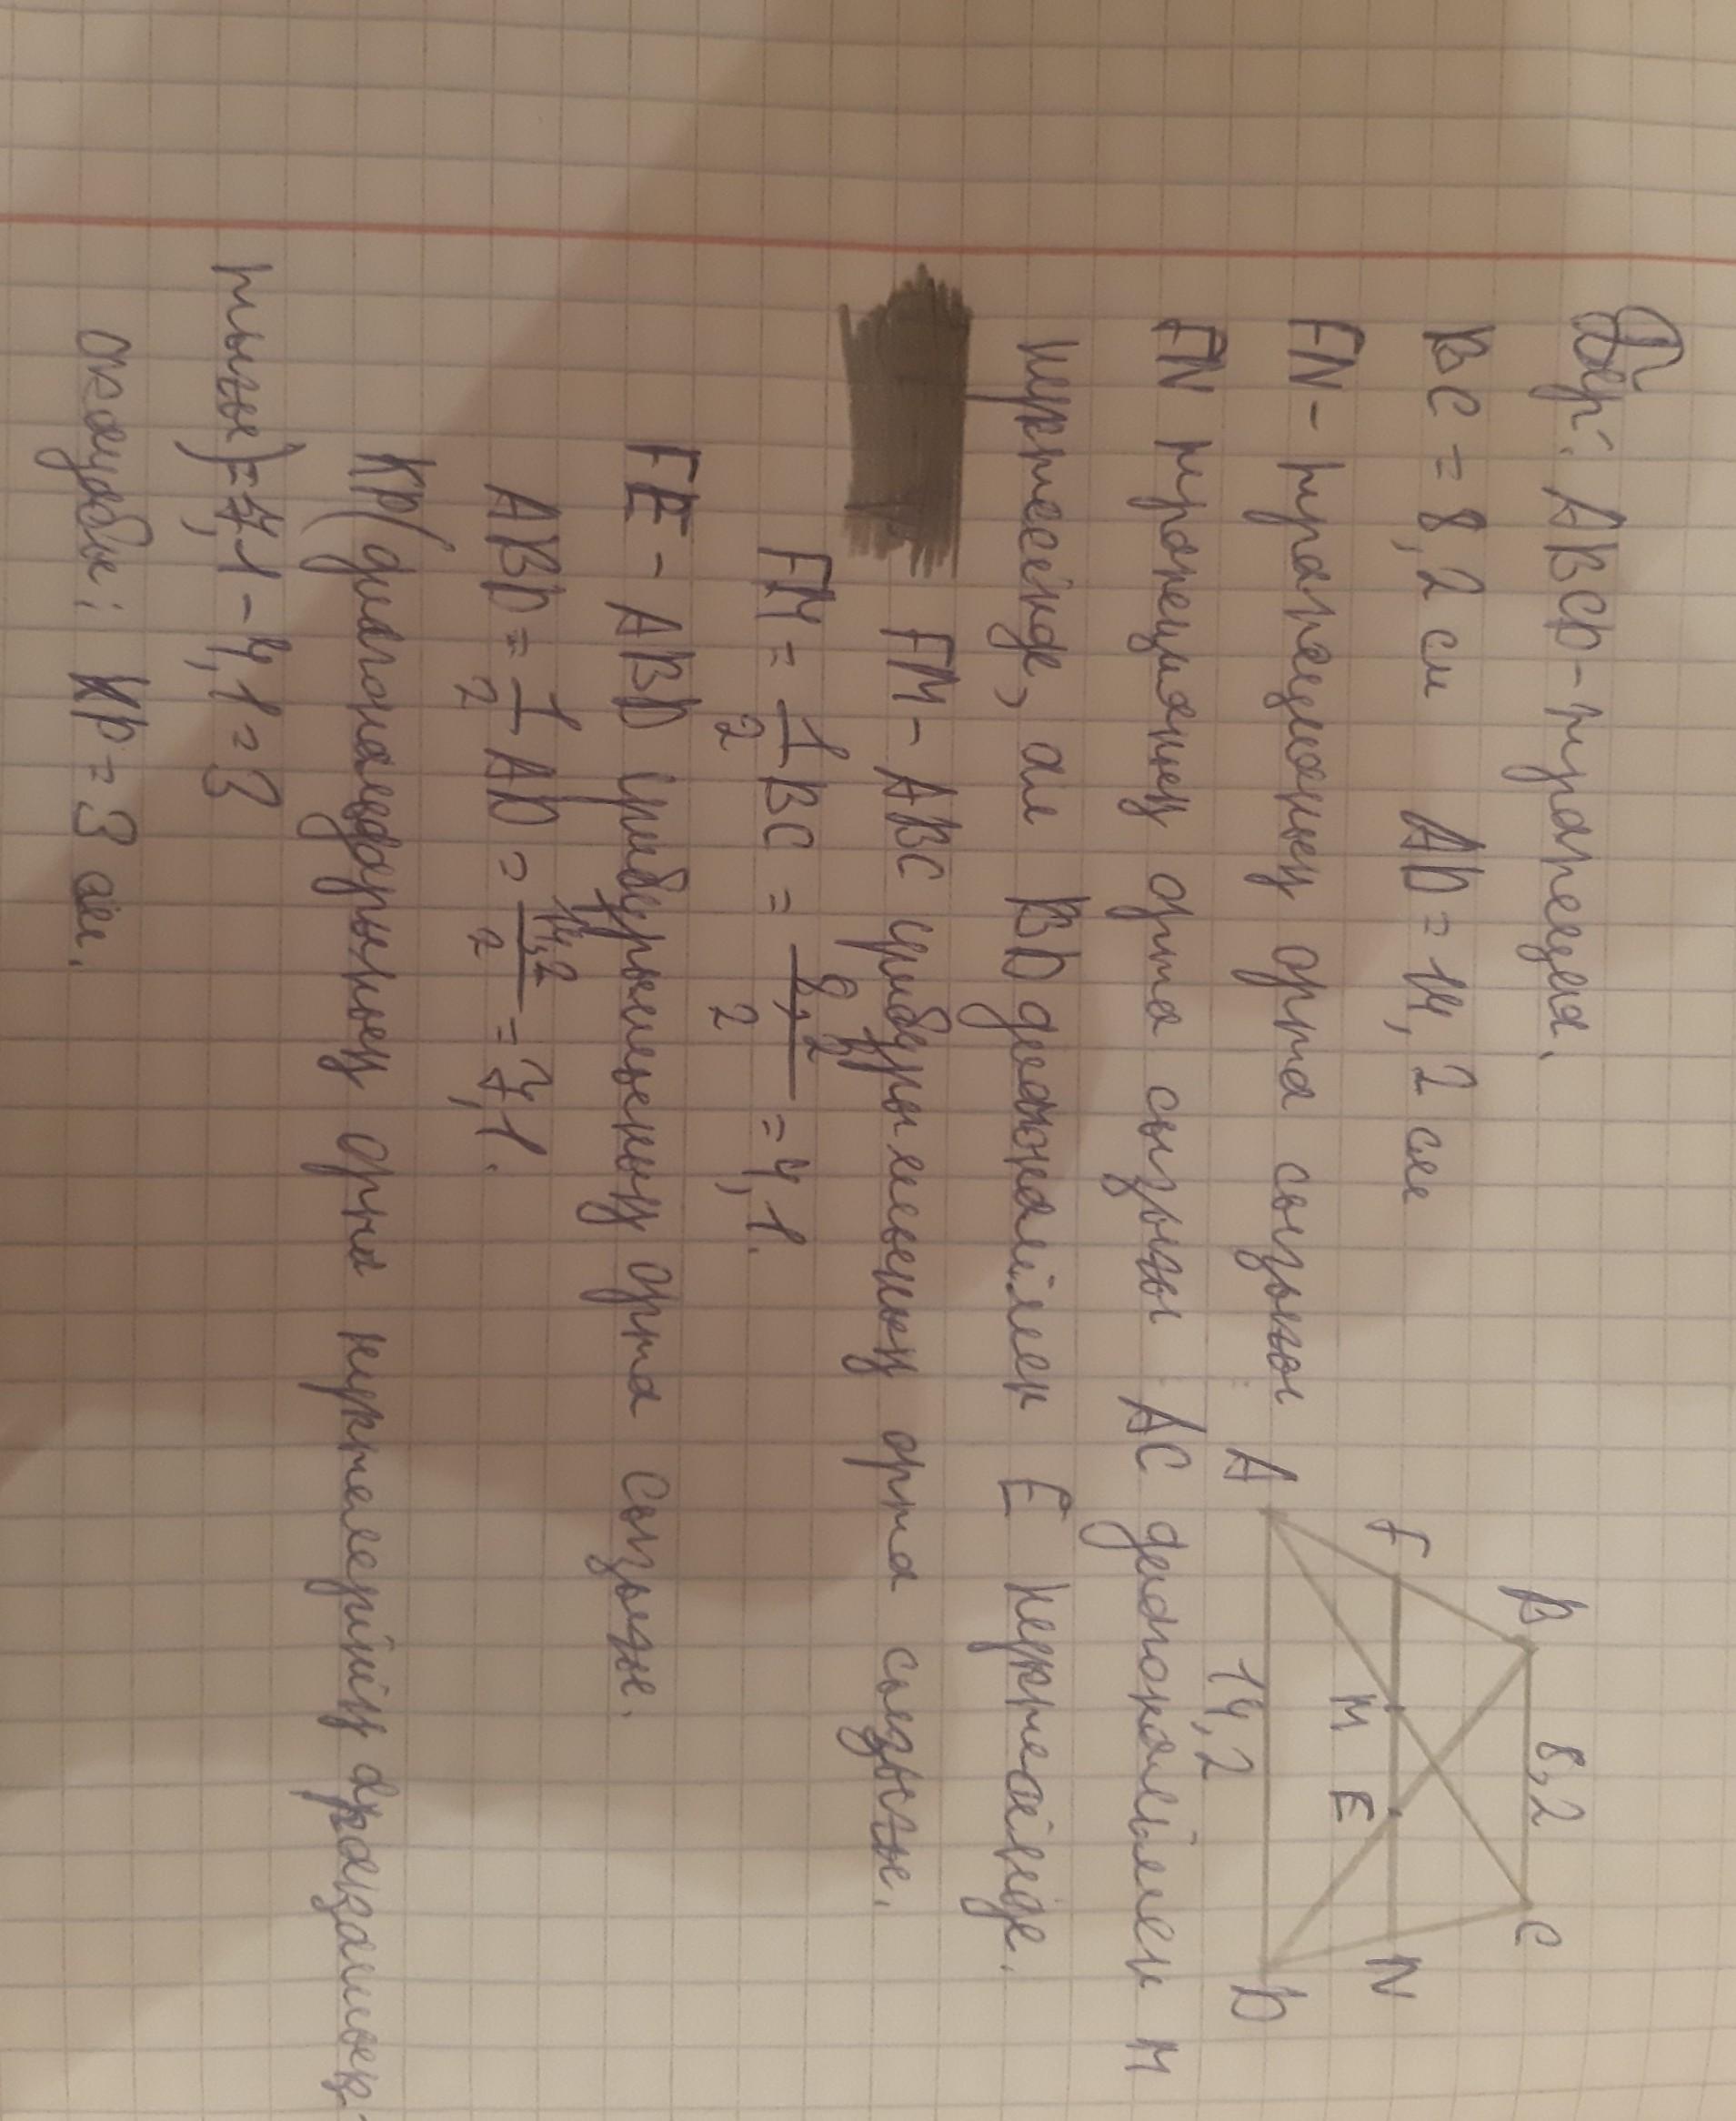 Бер: ABCD-трапеция.
BC = 8,2 см AD = 14,2 см
FN - трапецияның орта сызығы
FN трапецияның орта сызығы AC диагоналімен M
нүктесінде, ал BD диагоналімен E нүктесінде.
FM - ABC үшбұрышының орта сызығы.
FM = 1/2 BC = 8,2/2 = 4,1.
FE - ABD үшбұрышының орта сызығы.
ABD = 1/2 AD = 14,2/2 = 7,1.
KP(диагональдарының орта нүктелерінің арақашық-
тығы) = 7,1 - 4,1 = 3
жауабы: KP = 3 см.
B 8,2 C
F M E N
A 14,2 D